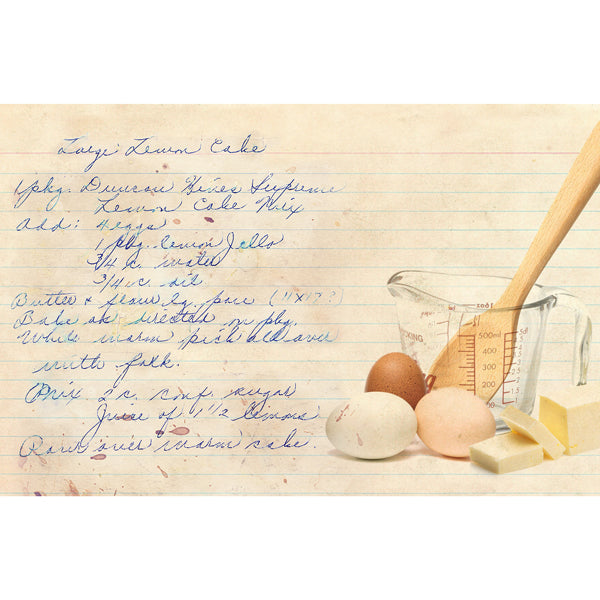 Large Lemon Cake
1 pkg. Duncan Hines Supreme
Lemon Cake Mix
add: 4 eggs
1 pkg. lemon Jello
3/4 c. water
3/4 c. oil
Butter & flour lg. pan (11X17?)
Bake as directed on pkg.
While warm pick all over
with fork.
Mix 2 c. conf. sugar
Juice of 1 1/2 lemons
Pour over warm cake.
500ml
400
300
200